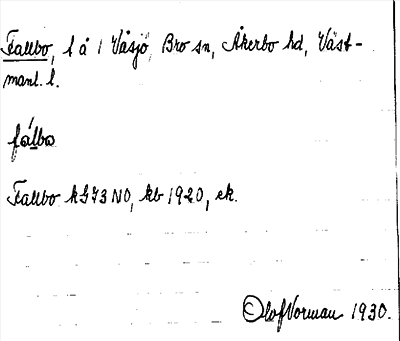 Fallbo, l å i Våsjö, Bro sn, Åkerbo hd, Väst-
manl. l.
fálbo
Fallbo kG73 NO, kb 1920, ek.
Olof Vorman 1930.